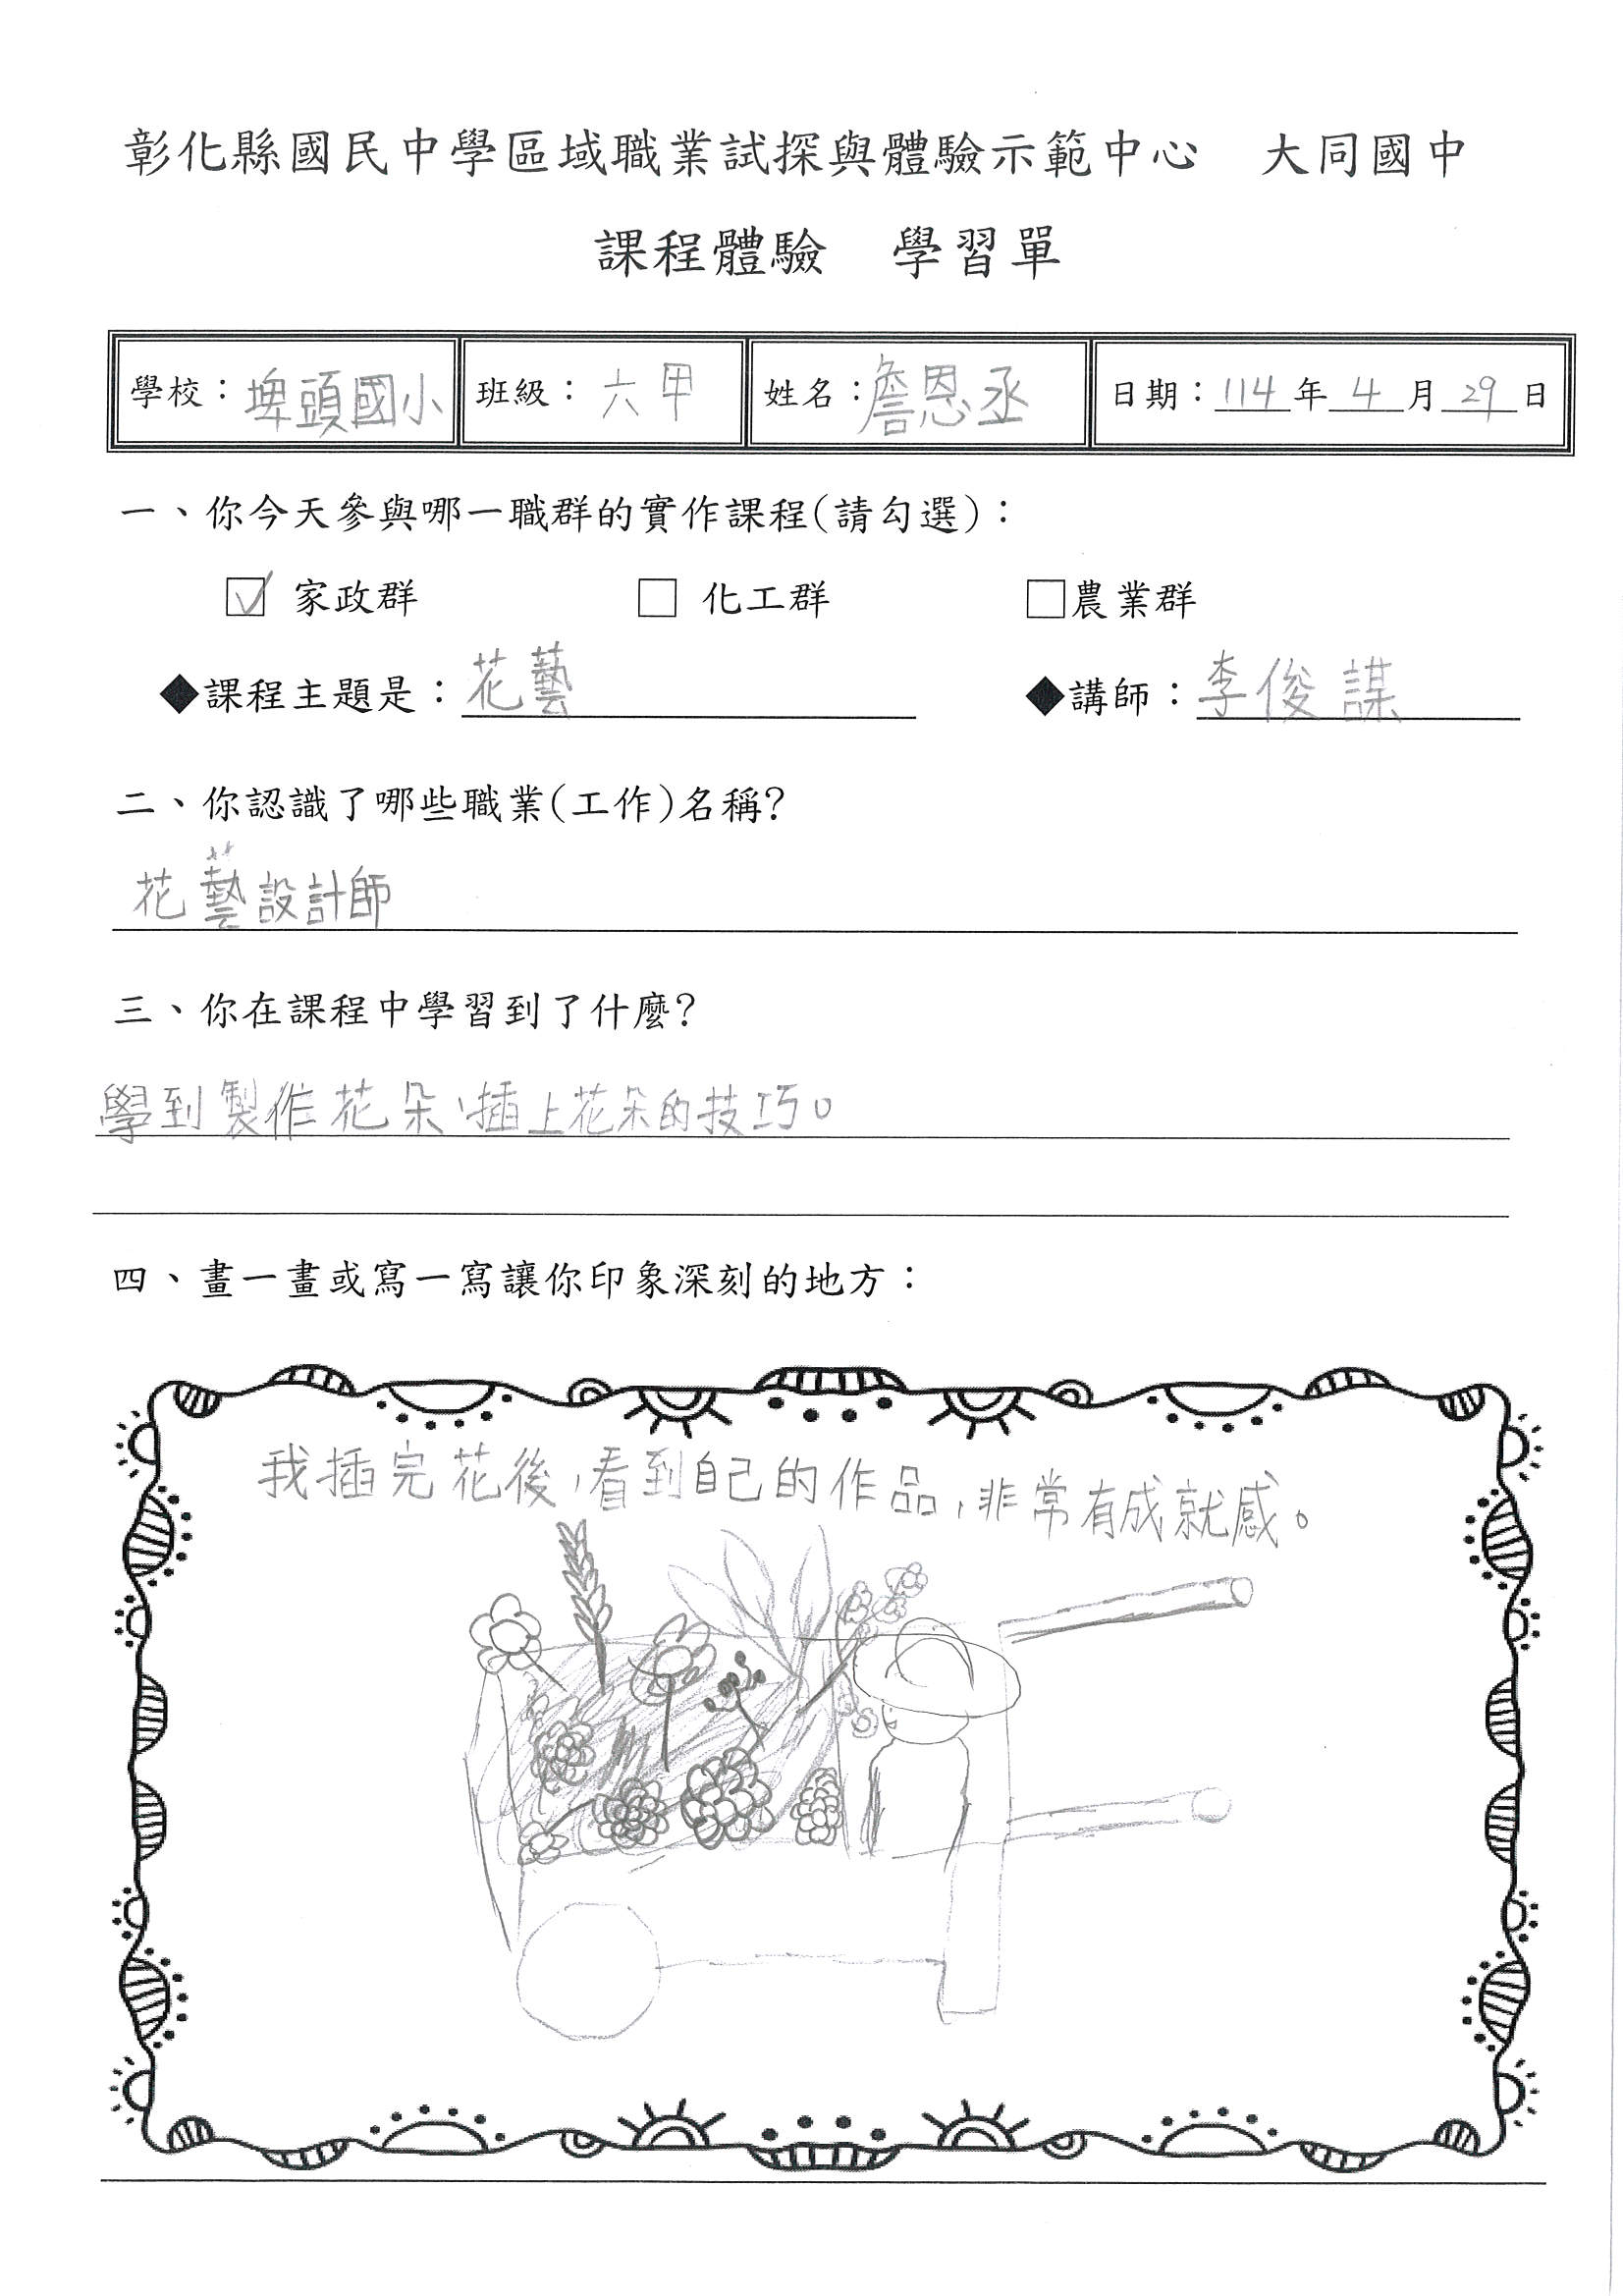 彰化縣國民中學區域職業試探與體驗示範中心　大同國中
課程體驗　學習單
學校：埤頭國小 班級：六甲 姓名：詹恩丞 日期：114年4月29日
一、你今天參與哪一職群的實作課程(請勾選)：
☑ 家政群 □ 化工群 □農業群
◆課程主題是：花藝 ◆講師：李俊謀
二、你認識了哪些職業(工作)名稱?
花藝設計師
三、你在課程中學習到了什麼?
學到製作花朵、插上花朵的技巧。
四、畫一畫或寫一寫讓你印象深刻的地方：
我插完花後，看到自己的作品，非常有成就感。